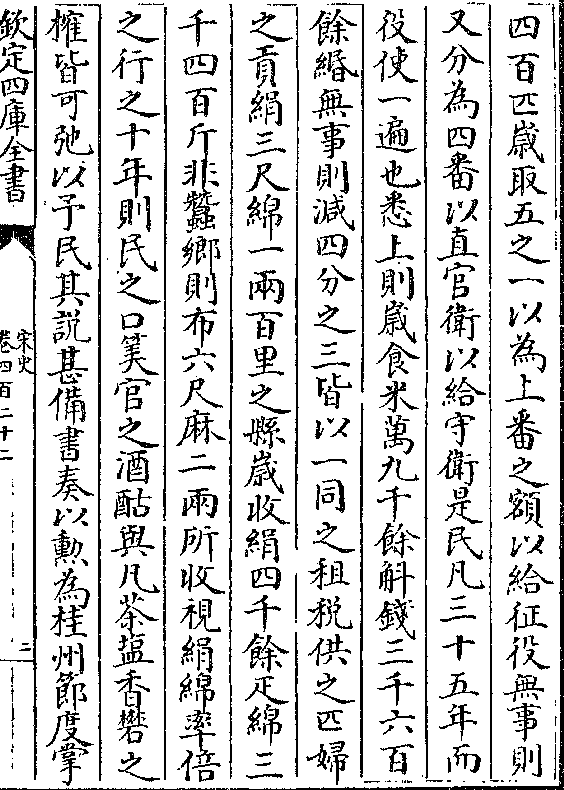 四百匹歲取五之一以為上番之額以給征役無事則
又分為四番以直官衛以給守衛是民凡三十五年而
役使一遍也悉上則歲食米萬九千餘斛錢三千六百
餘緡無事則減四分之三皆以一同之租稅供之匹婦
之貢絹三尺綿一兩百里之縣歲收絹四千餘疋綿三
千四百斤非蠶鄉則布六尺麻二兩所收視絹綿率倍
之行之十年則民之口筭官之酒酤與凡茶塩香礬之
榷皆可弛以予民其說甚備書奏以勲為桂州節度掌
欽定四庫全書
宋史
卷四百二十二
三